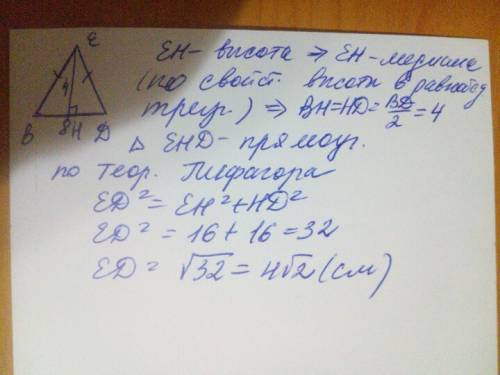 E
4
B 8 H D
EH - высота ⇒ EH - медиана
(по свойст. высоты в равнобед
треуг.) ⇒ BH=HD= BD/2 = 4
△ EHD - прямоуг.
по теор. Пифагора
ED² = EH² + HD²
ED² = 16 + 16 = 32
ED = √32 = 4√2 (см)